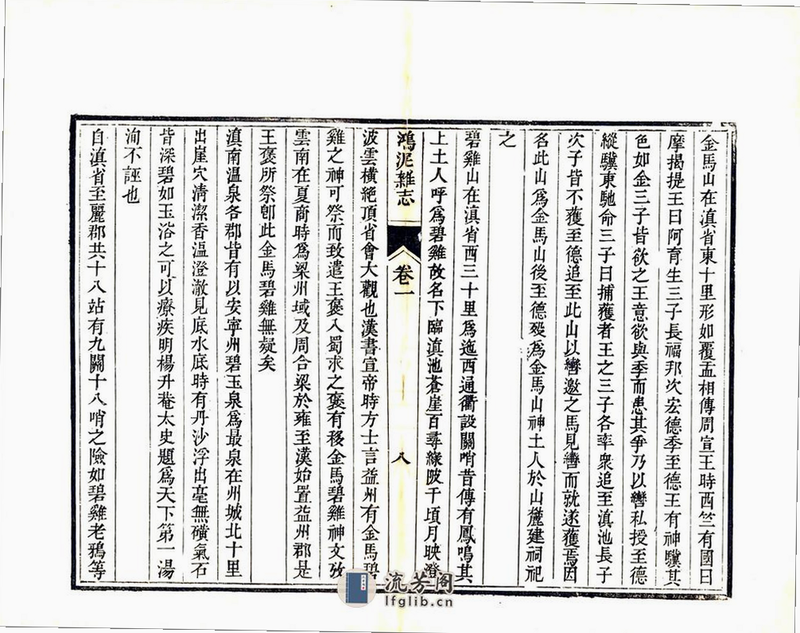 金馬山在滇省東十里形如覆盂相傳周宣王時西竺有國曰
摩揭提王曰阿育生三子長福邦次宏德季至德王有神驥其
色如金三子皆欲之王意欲與季而患其爭乃以轡私授至德
縱驥東馳命三子曰捕獲者王之三子各率衆追至滇池長子
次子皆不獲至德追至此山以轡邀之馬見轡而就遂獲焉因
名此山爲金馬山後至德殁爲金馬山神土人於山麓建祠祀
之
碧雞山在滇省西三十里爲迤西通衢設關哨昔傳有鳳鳴其
上土人呼爲碧雞故名下臨滇池蒼崖百尋綠陂千頃月映澄
鴻泥雜志 卷一 八
波雲橫絕頂省會大觀也漢書宣帝時方士言益州有金馬碧
雞之神可祭而致遣王褒入蜀求之褒有移金馬碧雞神文攷
雲南在夏商時爲梁州域及周合梁於雍至漢始置益州郡是
王褒所祭卽此金馬碧雞無疑矣
滇南溫泉各郡皆有以安寧州碧玉泉爲最泉在州城北十里
出崖穴清潔香溫澄澈見底水底時有丹沙浮出毫無磺氣石
皆深碧如玉浴之可以療疾明楊升菴太史題爲天下第一湯
洵不誣也
自滇省至麗郡共十八站有九關十八哨之險如碧雞老鴉等
流芳阁
lfglib.cn